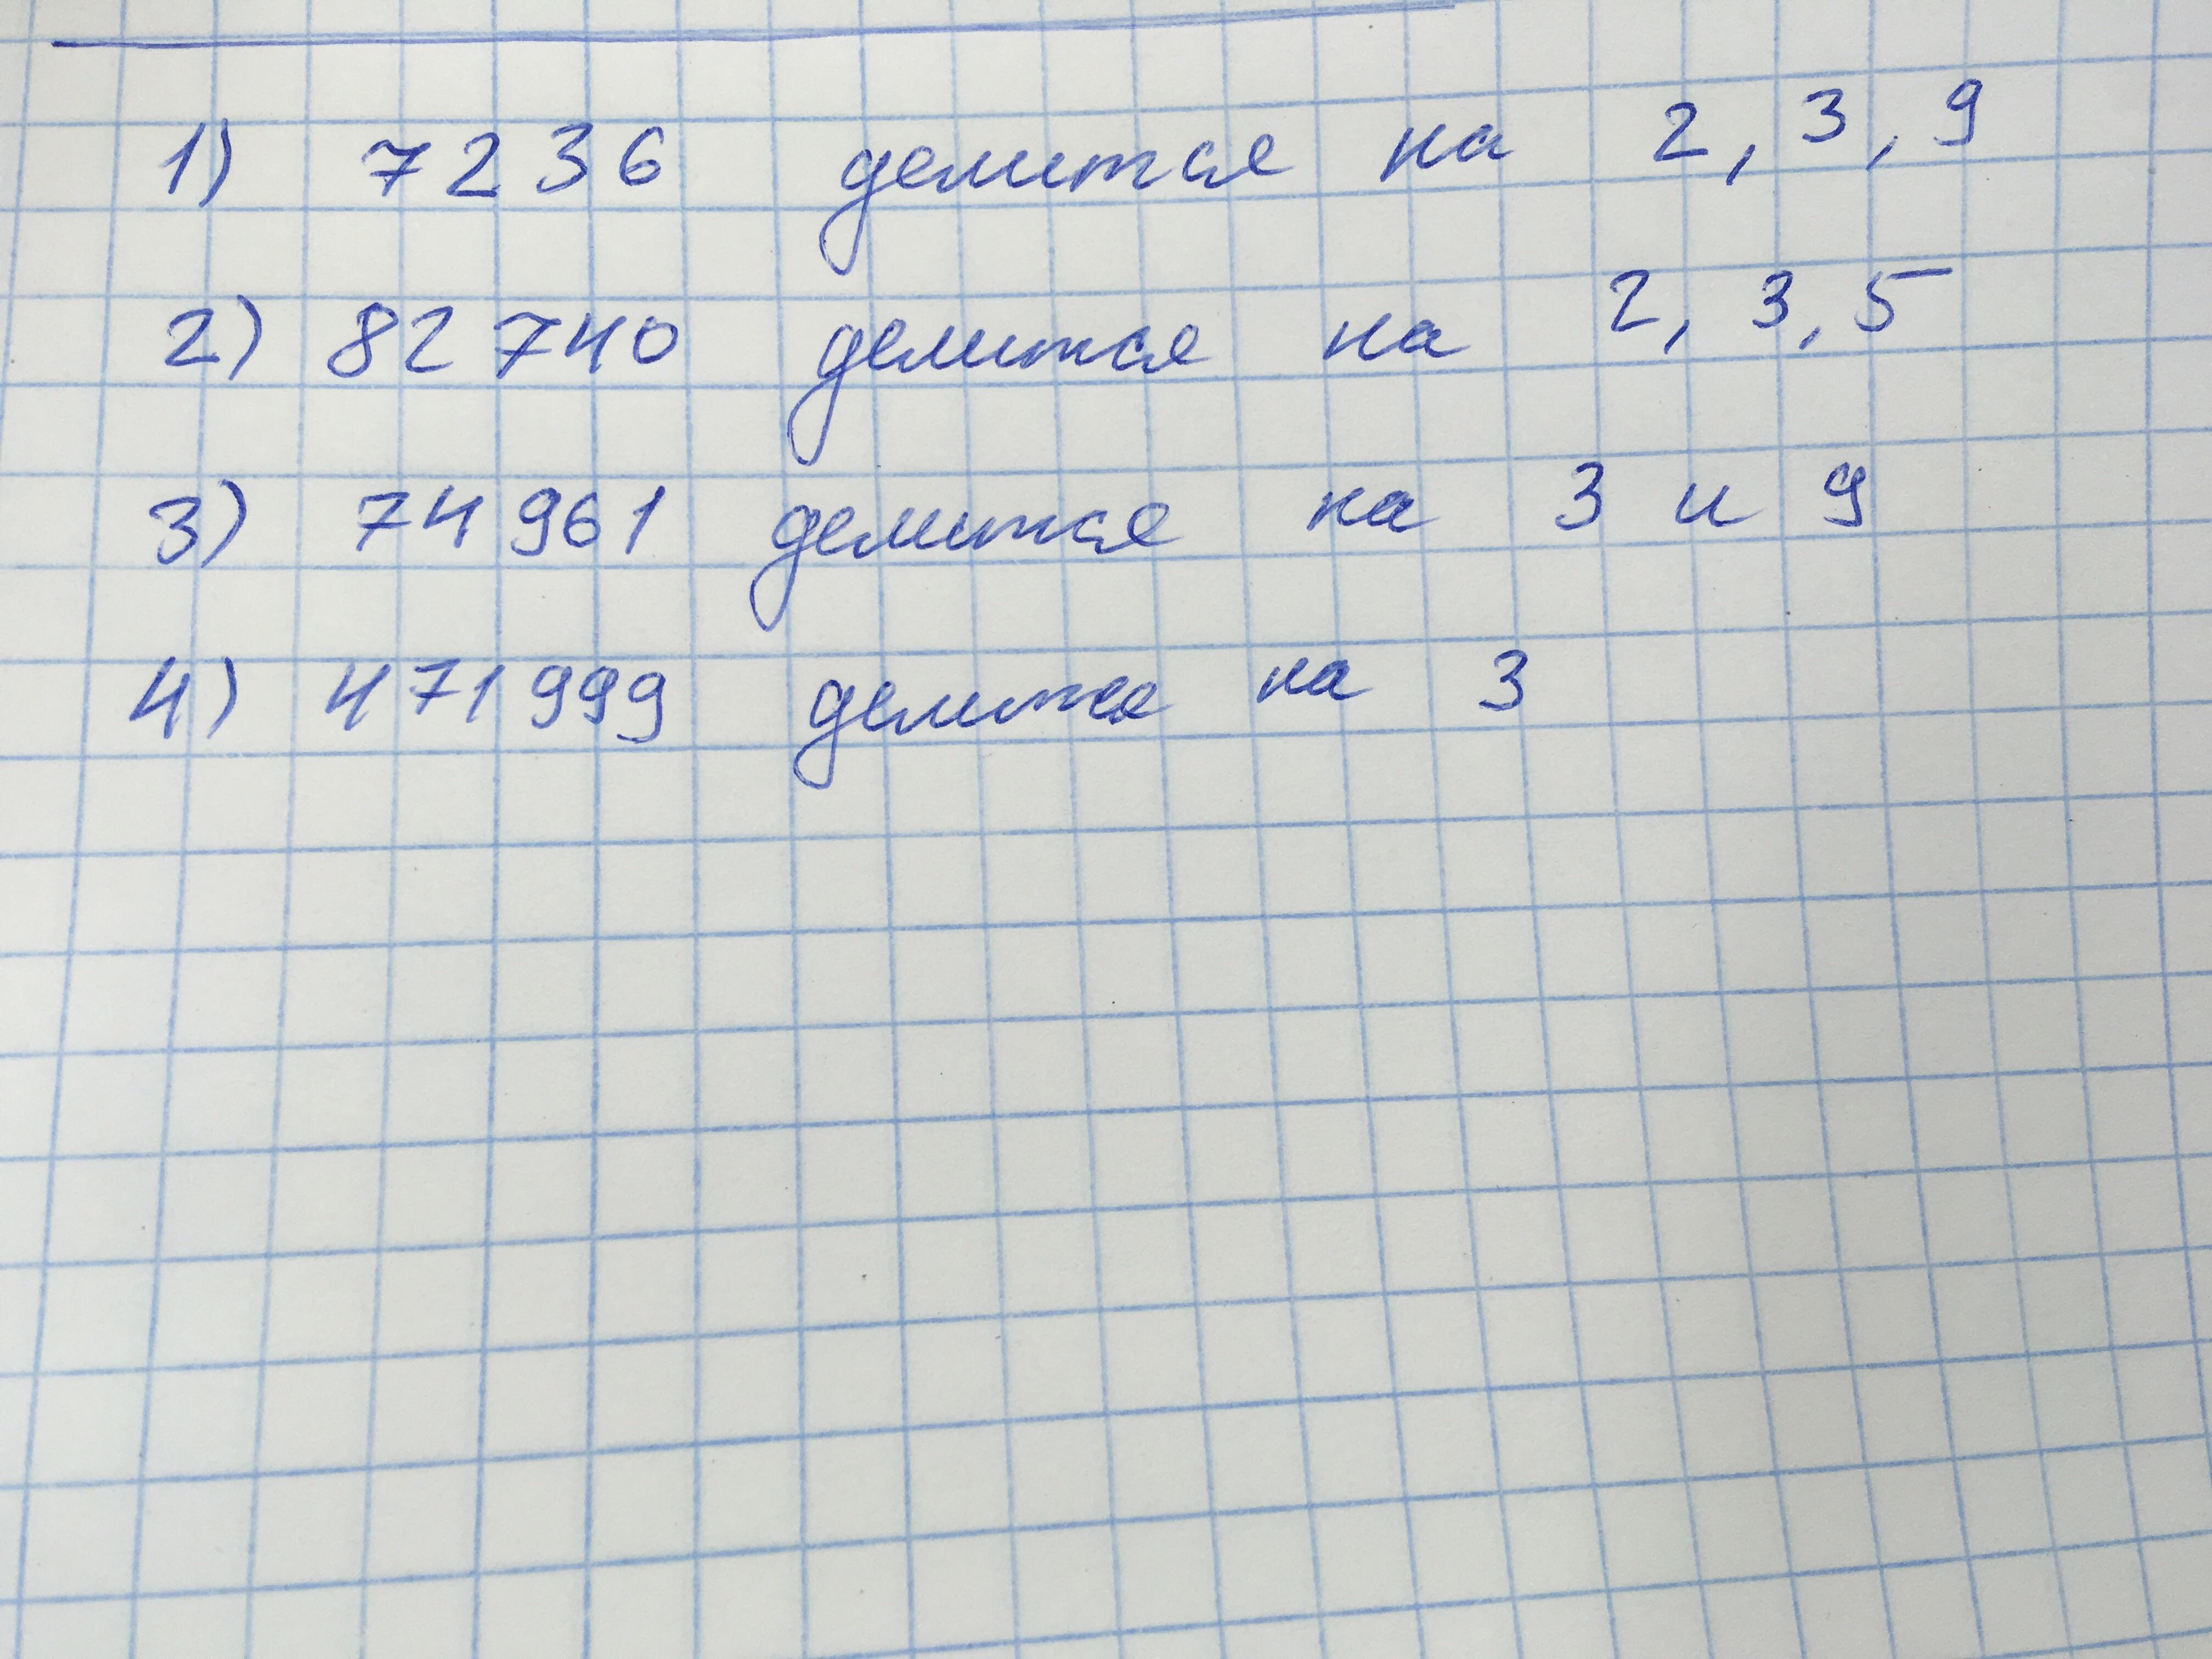 1) 7236 делится на 2, 3, 9
2) 82 740 делится на 2, 3, 5
3) 74 961 делится на 3 и 9
4) 471 999 делится на 3